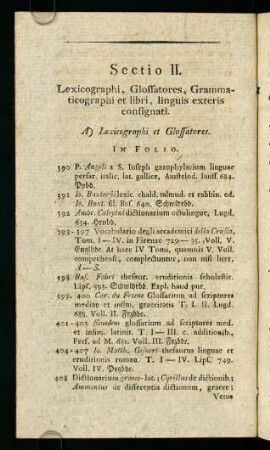 Sectio II.
Lexicographi, Glossatores, Gramma-
ticographi et libri, linguis exteris
consignati.
A) Lexicographi et Glossatores.
IN FOLIO.
390 P. Angeli a S. Ioseph gazophylacium linguae
persar. italic. lat. gallice, Amstelod. Ianss. 684.
Ppbd.
391 Io. Buxtorfii lexic. chald. talmud. et rabbin. ed.
Io. Buxt. fil. Bas. 640. Schwldrbd.
392 Ambr. Calepini dictionarium octolingue, Lugd.
634. Hrnbd.
393-397 Vocabulario degli accademici della Crusca,
Tom. I—IV. in Firenze 729—35. Voll. V.
Englbde. At haec IV Tomi, quamvis V Voll.
comprehensi, complectuntur, non nisi liter.
A—S.
398 Bas. Fabri thesaur. eruditionis scholastic.
Lips. 695. Schwldrbd. Expl. haud pur.
399. 400 Car. du Fresne Glossarium ad scriptores
mediae et infim. graecitatis T. I. II. Lugd.
688. Voll. II. Frzbde.
401-403 Eiusdem glossarium ad scriptores med.
et infim. latinit. T. I—III. c. additionib.
Frcf. ad M. 681. Voll. III. Frzbde.
404-407 Io. Matth. Gesneri thesaurus linguae et
eruditionis roman. T. I—IV. Lips. 749.
Voll. IV. Pegbde.
408 Dictionarium graeco-lat.; Cyrillus de dictionib;
Ammonius de differentia dictionum, graece;
Vetus